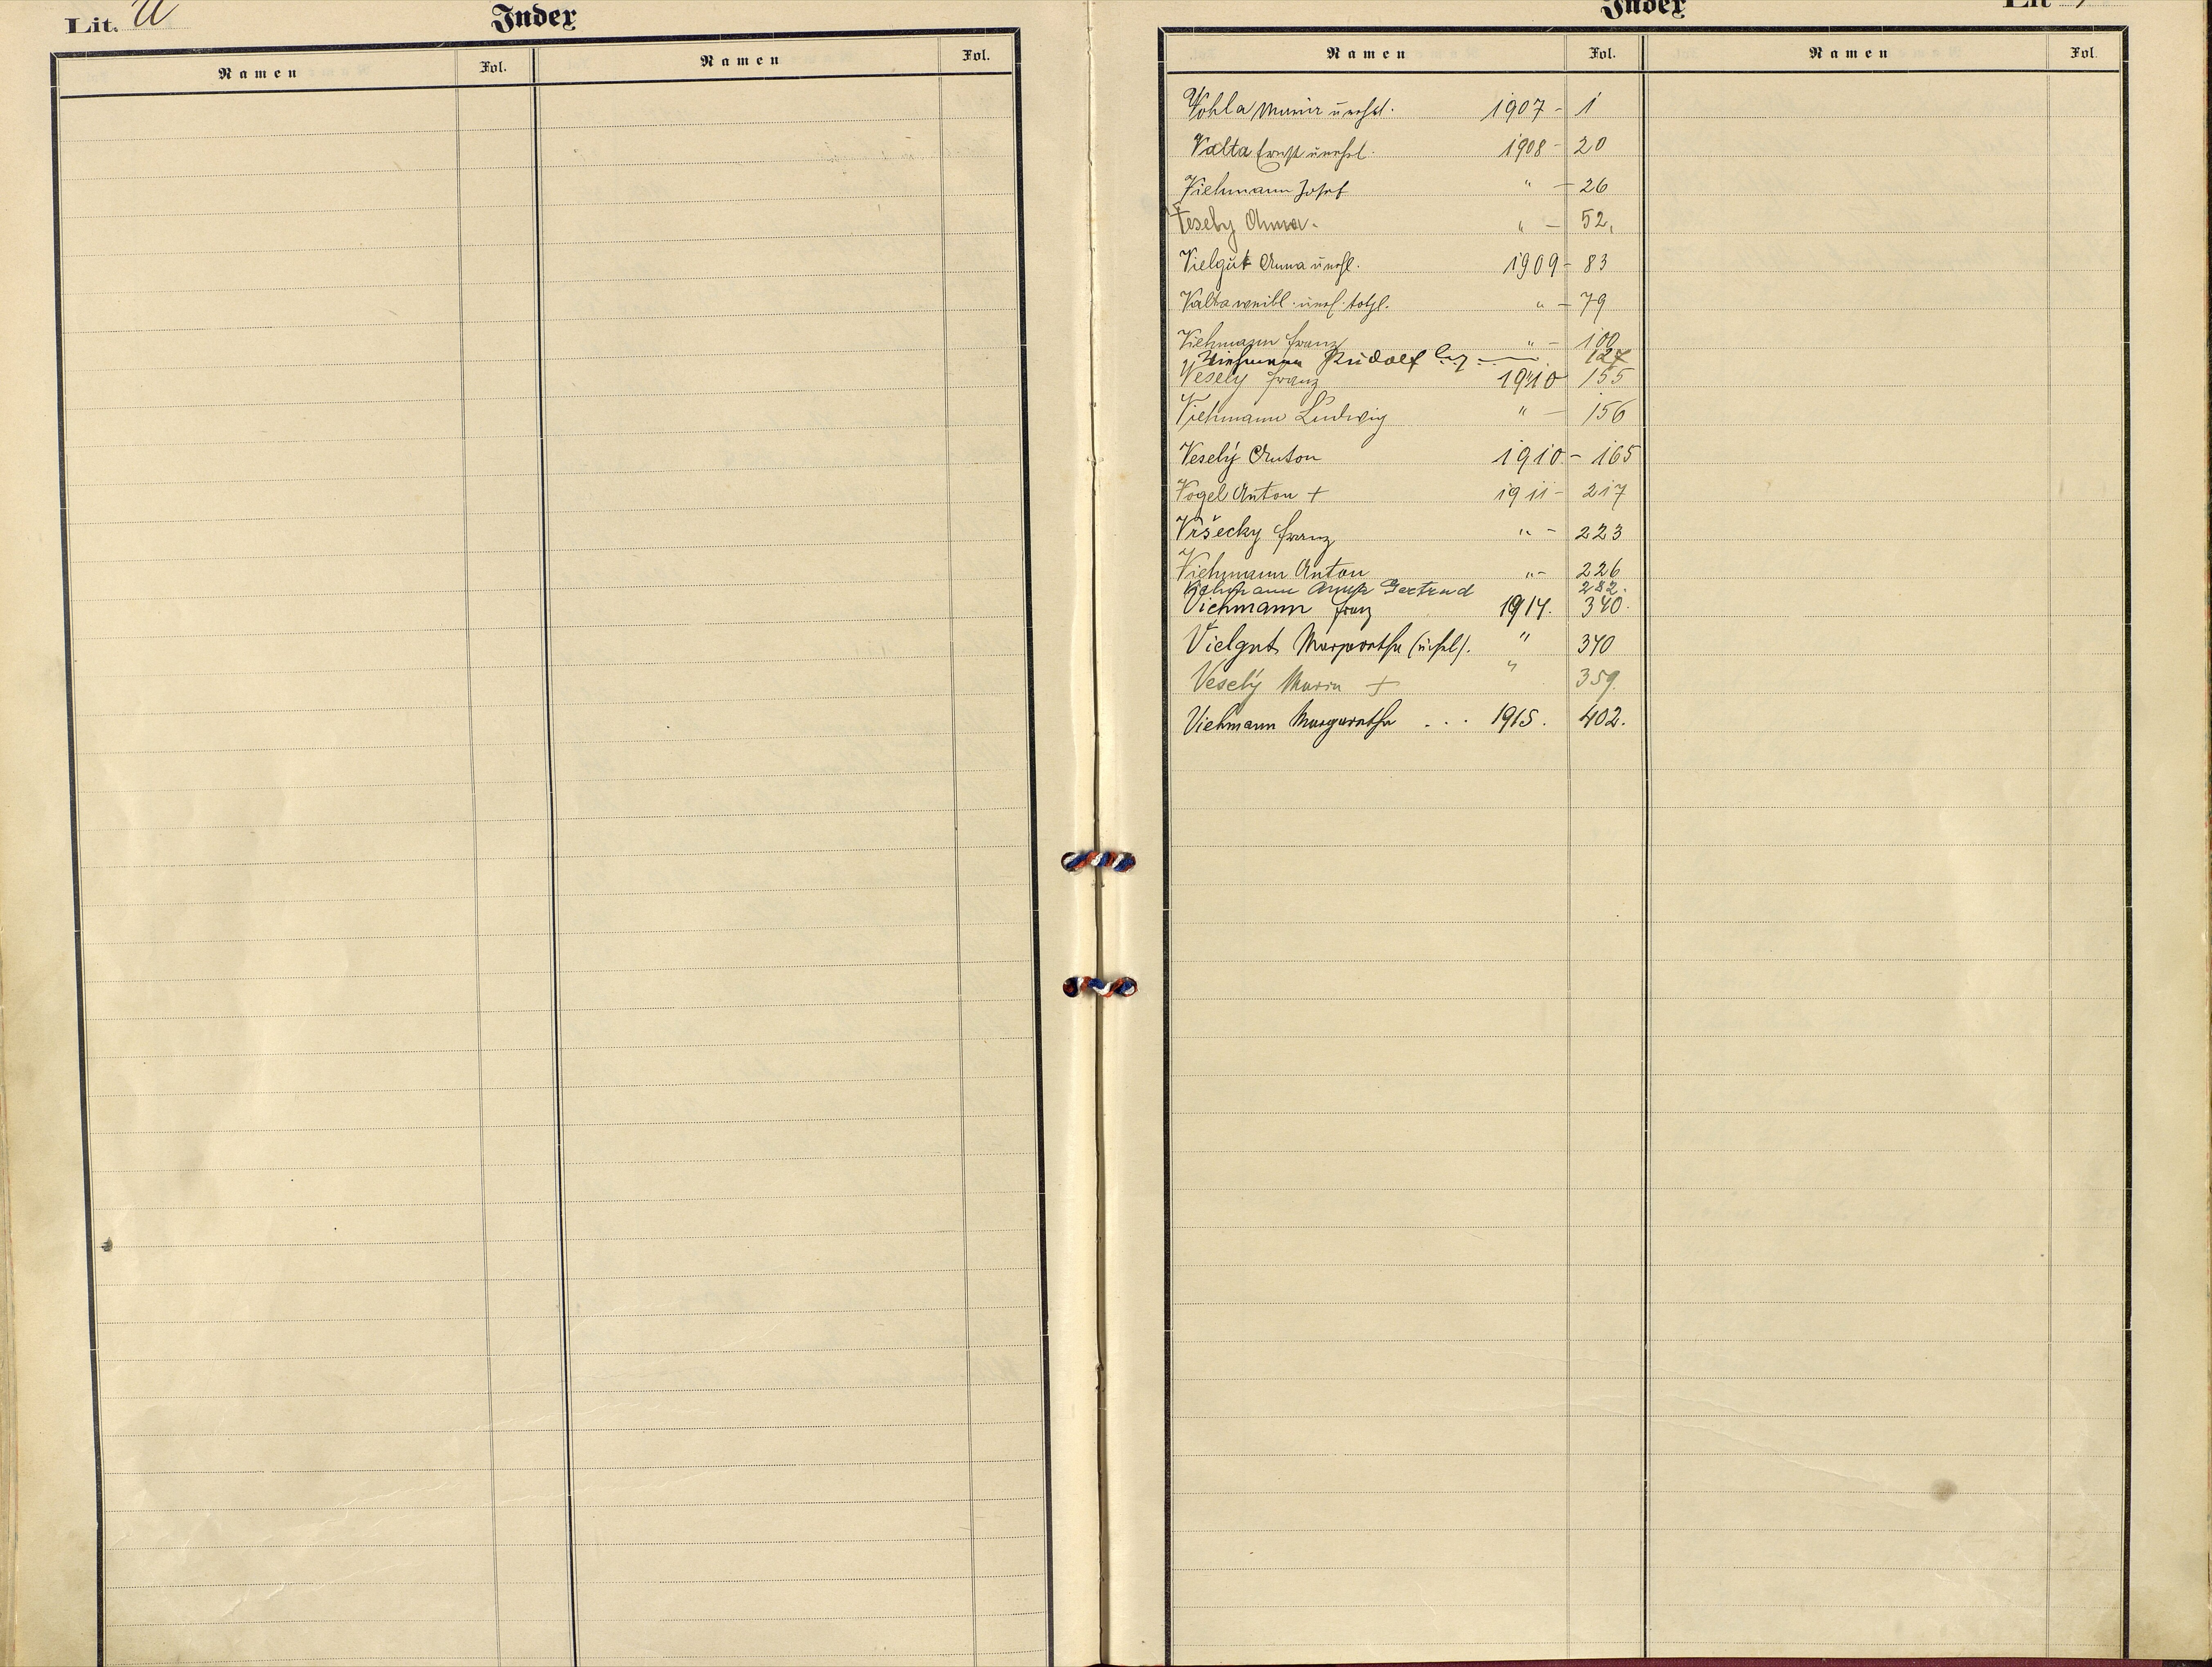 Lit. U
Index
Namen Fol. Namen Fol.
Index
Lit
Namen Fol. Namen Fol.
Vohla Maria unehel. 1907 - 1
Valta Ernst unehel. 1908 - 20
Viehmann Josef " - 26
Vesely Anna. " - 52.
Vielgut Anna unehl. 1909 - 83
Valta weibl. unehl. totgl. " - 79
Viehmann Franz " - 100
Viehmann Rudolf leg. 127
Vesely Franz 1910 155
Viehmann Ludwig " - 156
Veselý Anton 1910 - 165
Vogel Anton + 1911 - 217
Vršecky Franz " - 223
Viehmann Anton " - 226
Viehmann Anna Gertrud 282.
Viehmann Franz 1914. 340.
Vielgut Margaretha (unehl). " 340
Veselý Maria + " 359.
Viehmann Margaretha . . . 1915. 402.